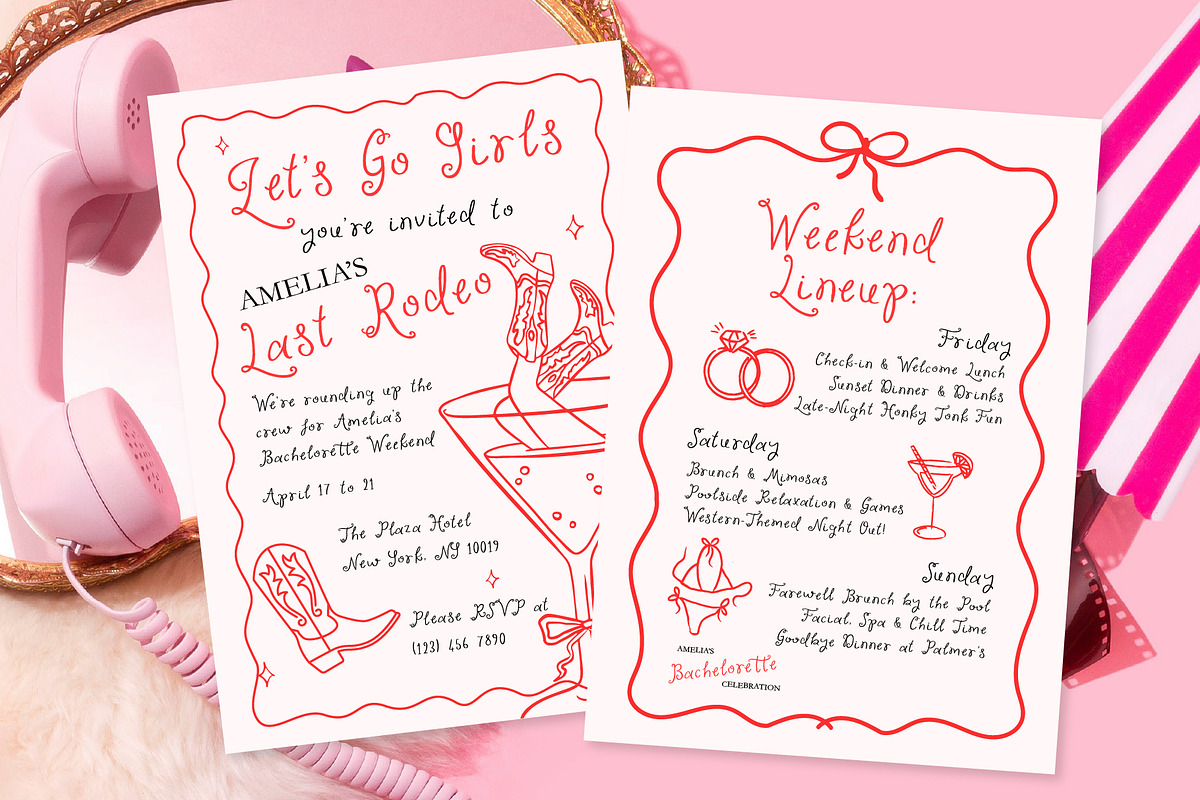 Let's Go Girls
you're invited to
AMELIA'S
Last Rodeo
We're rounding up the
crew for Amelia's
Bachelorette Weekend
April 17 to 21
The Plaza Hotel
New York, NY 10019
Please RSVP at
(123) 456 7890
Weekend
Lineup:
Friday
Check-in & Welcome Lunch
Sunset Dinner & Drinks
Late-Night Honky Tonk Fun
Saturday
Brunch & Mimosas
Poolside Relaxation & Games
Western-Themed Night Out!
Sunday
Farewell Brunch by the Pool
Facial, Spa & Chill Time
Goodbye Dinner at Palmer's
AMELIA'S
Bachelorette
CELEBRATION